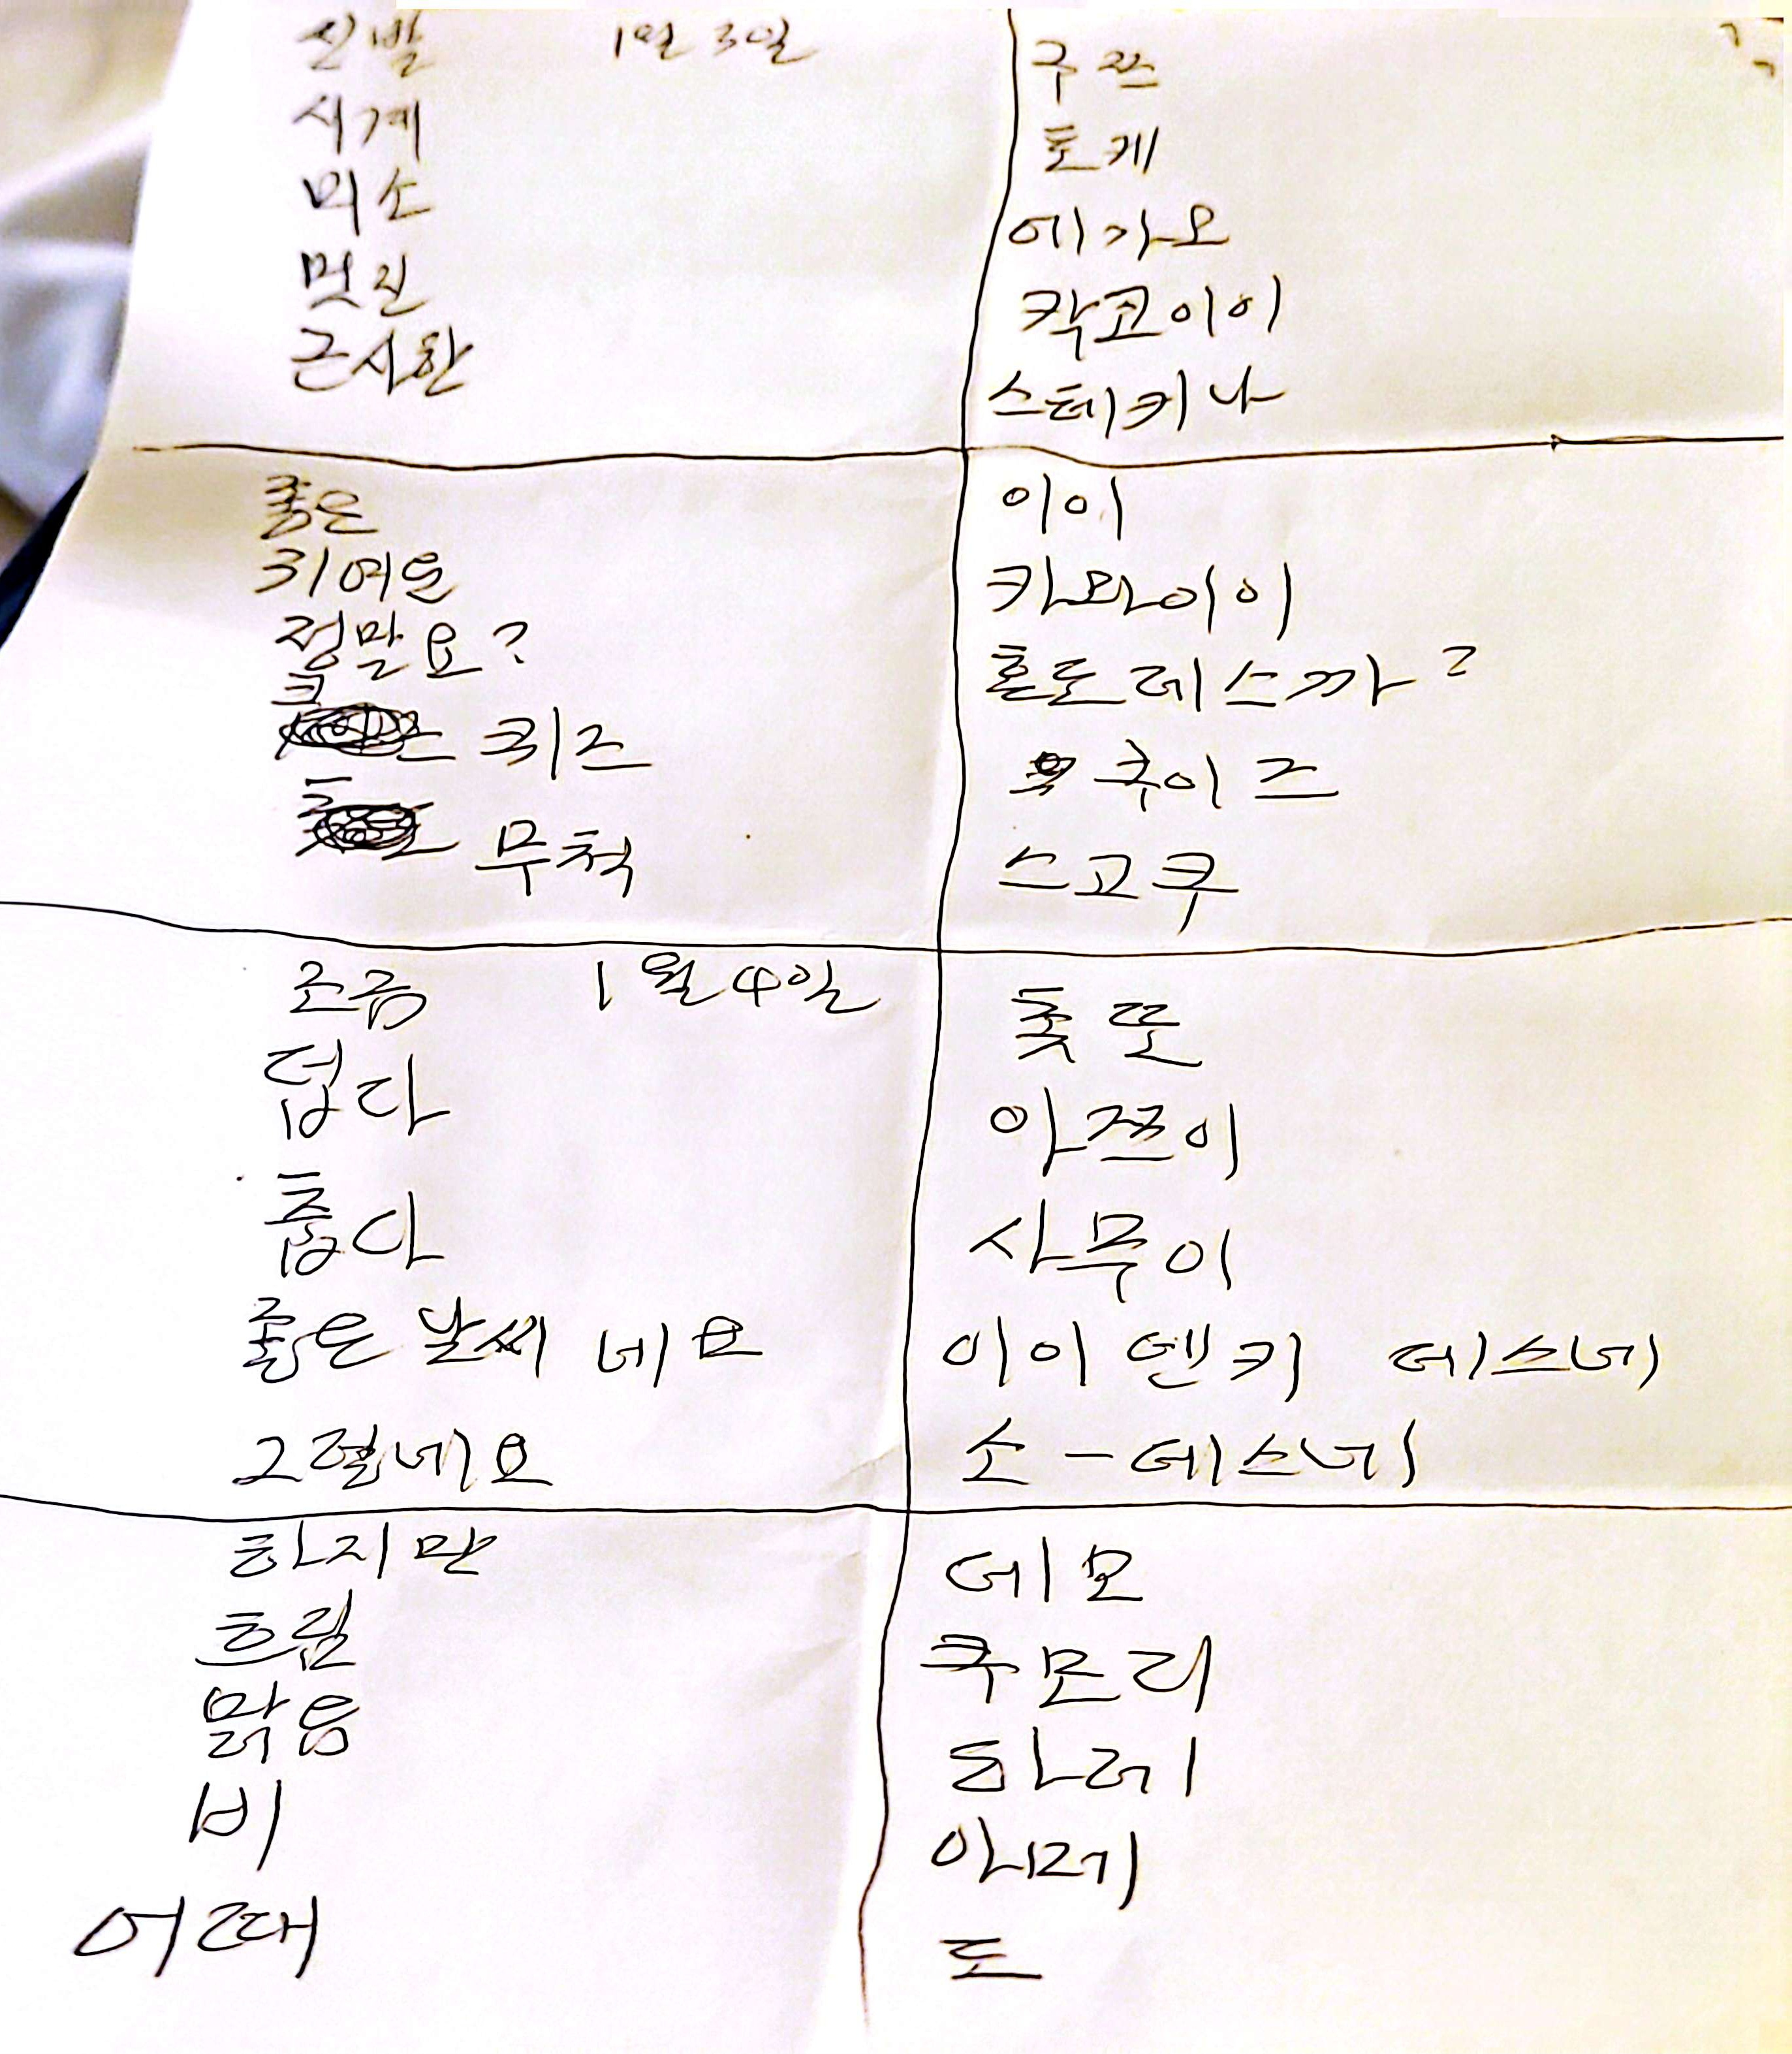 신발 1월 3일 구쯔
시계 토케
미소 에가오
멋진 칵코이이
근사한 스테키나
좋은 이이
귀여운 카와이이
정말요? 혼토데스까?
퀴즈 쿠이즈
무척 스고쿠
조금 1월 4일 춋또
덥다 아쯔이
춥다 사무이
좋은 날씨 네요 이이 덴키 데스네
그렇네요 소-데스네
하지만 데모
흐림 쿠모리
맑음 하레
비 아메
어때 도